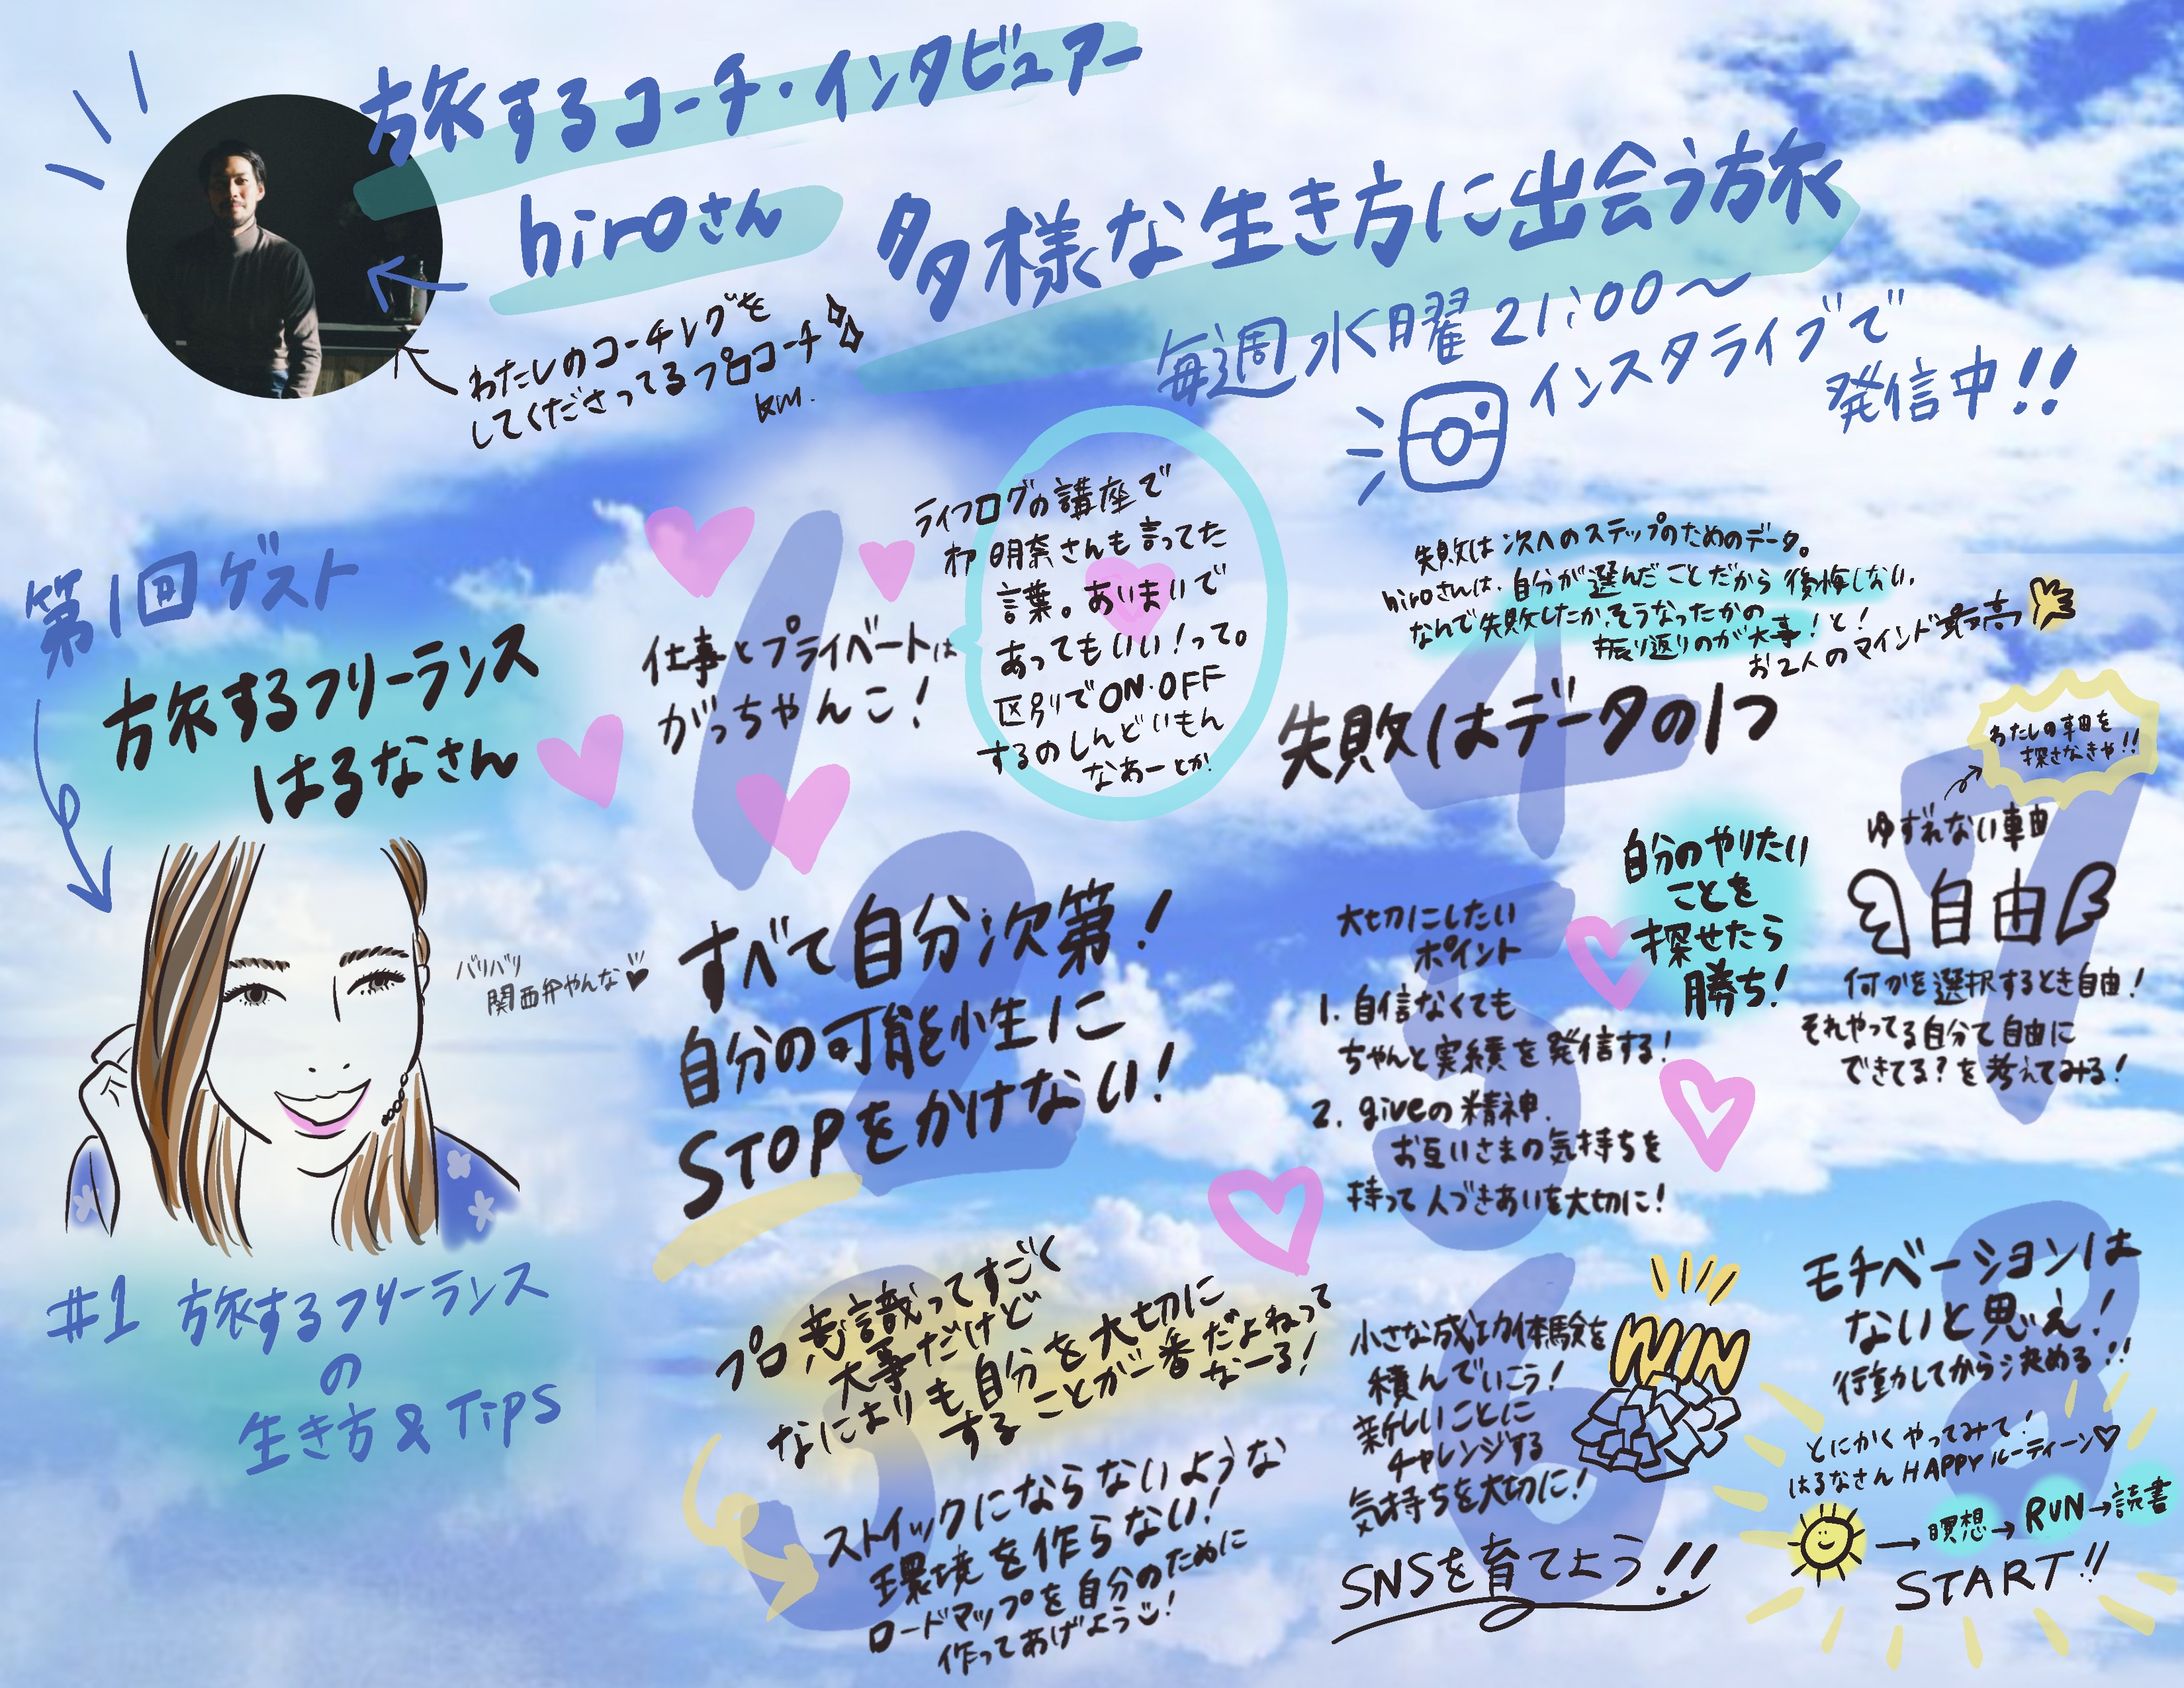 旅するコーチ・インタビュアー
hiroさん
わたしのコーチングを
してくださってるプロコーチ
多様な生き方に出会う旅
毎週水曜21:00〜
インスタライブで
発信中!!
第1回ゲスト
旅するフリーランス
はるなさん
バリバリ
関西弁やんな
#1 旅するフリーランス
の
生き方 & Tips
1
仕事とプライベートは
がっちゃんこ!
ライフログの講座で
明奈さんも言ってた
言葉。あいまいで
あってもいい!って。
区別でON・OFF
するのしんどいもん
なあーとか
2
すべて自分次第!
自分の可能性に
STOPをかけない!
3
プロ意識ってすごく
大事だけど
なによりも自分を大切に
することが一番だよねって
なーる!
ストイックにならないような
環境を作らない!
ロードマップを自分のために
作ってあげよう!
4
失敗は次へのステップのためのデータ。
hiroさんは、自分が選んだことだから後悔しない。
なんで失敗したか、そうなったかの
振り返りのが大事!と!
お2人のマインド最高
失敗はデータの1つ
5
大切にしたい
ポイント
1. 自信なくても
ちゃんと実績を発信する!
2. giveの精神.
お互いさまの気持ちを
持って人づきあいを大切に!
自分のやりたい
ことを
探せたら
勝ち!
6
小さな成功体験を
積んでいこう!
新しいことに
チャレンジする
気持ちを大切に!
WIN
SNSを育てよう!!
7
わたしの軸を
探さなきゃ!!
ゆずれない軸
自由
何かを選択するとき自由!
それやってる自分て自由に
できてる?を考えてみる!
8
モチベーションは
ないと思え!
行動してから決める!!
とにかくやってみて!
はるなさんHAPPYルーティーン♡
→瞑想→RUN→読書
START!!